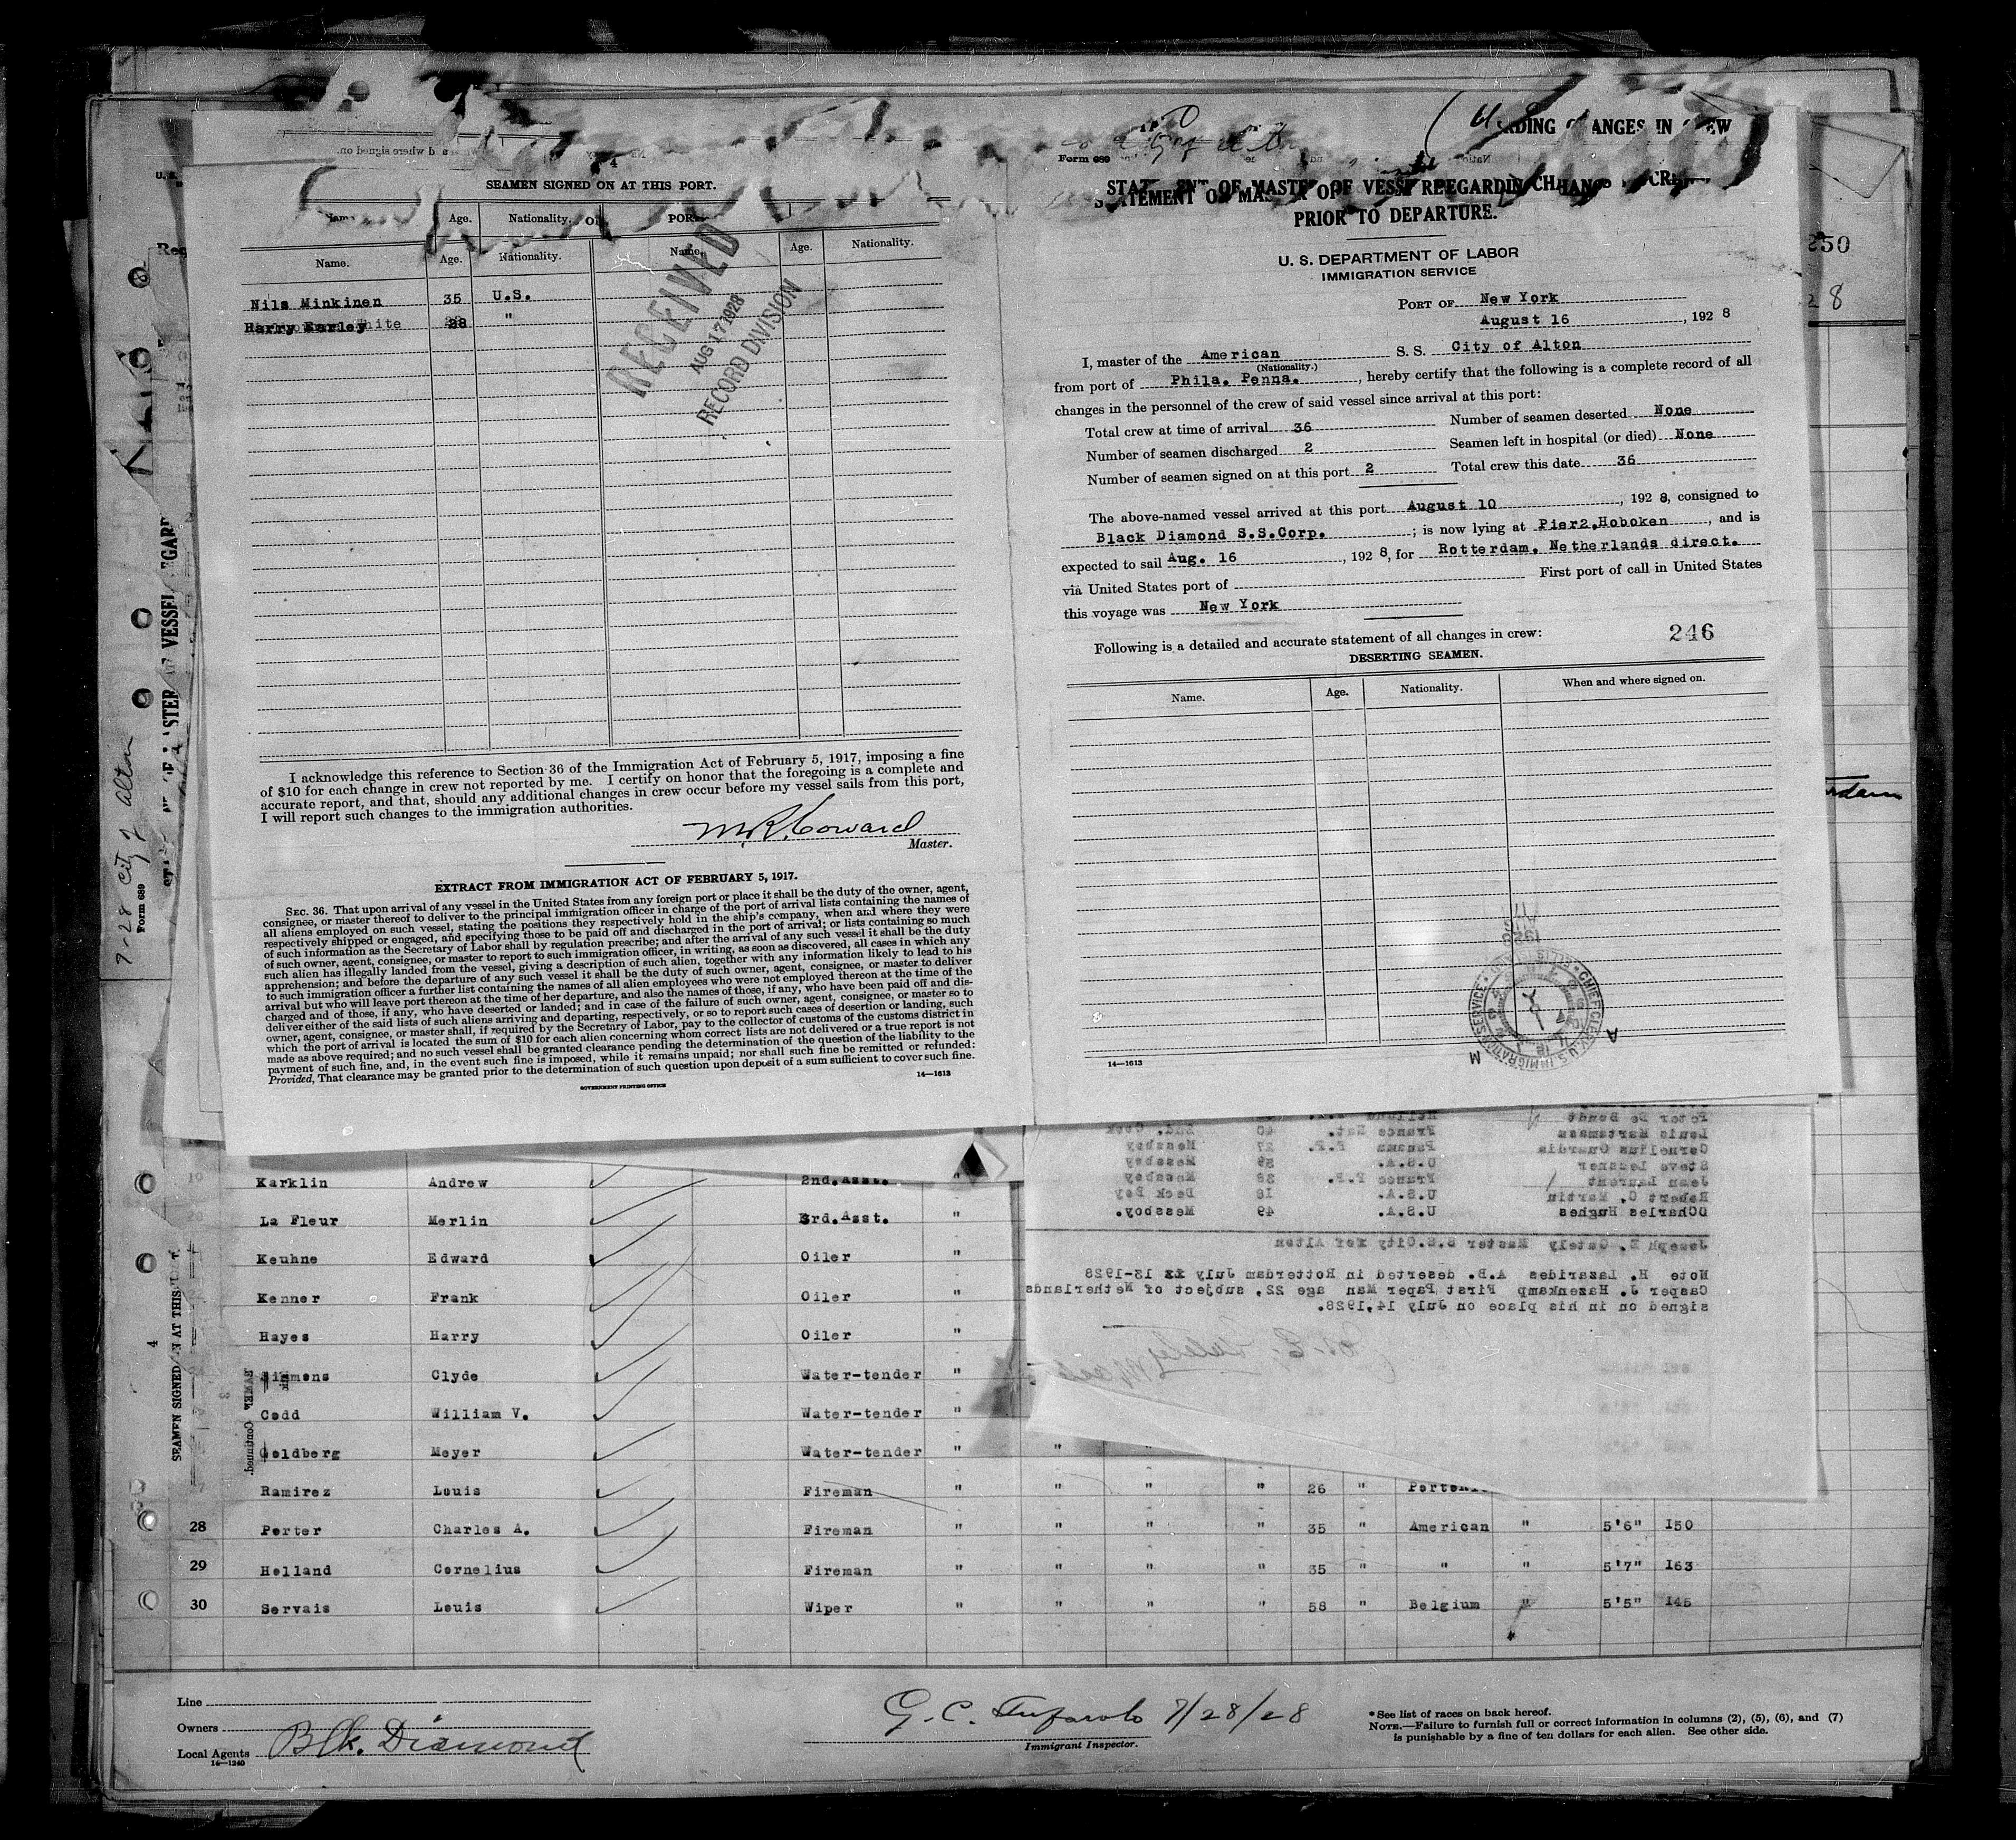 SEAMEN SIGNED ON AT THIS PORT.
Age. Nationality.
Name. Age. Nationality. Name. Age. Nationality.
Nils Minkinen 35 U.S.
Harry Earley 28 "
RECEIVED
AUG 17 1928
RECORD DIVISION
I acknowledge this reference to Section 36 of the Immigration Act of February 5, 1917, imposing a fine
of $10 for each change in crew not reported by me. I certify on honor that the foregoing is a complete and
accurate report, and that, should any additional changes in crew occur before my vessel sails from this port,
I will report such changes to the immigration authorities.
M.R. Coward
Master.
EXTRACT FROM IMMIGRATION ACT OF FEBRUARY 5, 1917.
SEC. 36. That upon arrival of any vessel in the United States from any foreign port or place it shall be the duty of the owner, agent,
consignee, or master thereof to deliver to the principal immigration officer in charge of the port of arrival lists containing the names of
all aliens employed on such vessel, stating the positions they respectively hold in the ship's company, when and where they were
respectively shipped or engaged, and specifying those to be paid off and discharged in the port of arrival; or lists containing so much
of such information as the Secretary of Labor shall by regulation prescribe; and after the arrival of any such vessel it shall be the duty
of such owner, agent, consignee, or master to report to such immigration officer, in writing, as soon as discovered, all cases in which any
such alien has illegally landed from the vessel, giving a description of such alien, together with any information likely to lead to his
apprehension; and before the departure of any such vessel it shall be the duty of such owner, agent, consignee, or master to deliver
to such immigration officer a further list containing the names of all alien employees who were not employed thereon at the time of the
arrival but who will leave port thereon at the time of her departure, and also the names of those, if any, who have been paid off and dis-
charged and of those, if any, who have deserted or landed; and in case of the failure of such owner, agent, consignee, or master so to
deliver either of the said lists of such aliens arriving and departing, respectively, or so to report such cases of desertion or landing, such
owner, agent, consignee, or master shall, if required by the Secretary of Labor, pay to the collector of customs of the customs district in
which the port of arrival is located the sum of $10 for each alien concerning whom correct lists are not delivered or a true report is not
made as above required; and no such vessel shall be granted clearance pending the determination of the question of the liability to the
payment of such fine, and, in the event such fine is imposed, while it remains unpaid; nor shall such fine be remitted or refunded:
Provided, That clearance may be granted prior to the determination of such question upon deposit of a sum sufficient to cover such fine.
GOVERNMENT PRINTING OFFICE
14—1613
Form 689
PRIOR TO DEPARTURE.
U. S. DEPARTMENT OF LABOR
IMMIGRATION SERVICE
PORT OF New York
August 16, 1928
I, master of the American S. S. City of Alton
(Nationality.)
from port of Phila. Penna., hereby certify that the following is a complete record of all
changes in the personnel of the crew of said vessel since arrival at this port:
Total crew at time of arrival 36 Number of seamen deserted None
Number of seamen discharged 2 Seamen left in hospital (or died) None
Number of seamen signed on at this port 2 Total crew this date 36
The above-named vessel arrived at this port August 10, 1928, consigned to
Black Diamond S.S.Corp.; is now lying at Pier2,Hoboken, and is
expected to sail Aug. 16, 1928, for Rotterdam, Netherlands direct.
via United States port of First port of call in United States
this voyage was New York
Following is a detailed and accurate statement of all changes in crew: 246
DESERTING SEAMEN.
Name. Age. Nationality. When and where signed on.
14—1613
250
7-28 City of Alton
Form 689
SEAMEN SIGNED ON AT THIS
Peter De Bondt
Louis Martsmass
Cornelius Guardia Panama F.P. 27 Messboy
Steve Lessner U.S.A. 59 Messboy
Jean Laurent France F.P. 38 Messboy
Robert C. Martin U.S.A. 18 Deck Boy
Charles Hughes U.S.A. 49 Messboy.
Joseph E. Gately Master S.S.City for Alton
Note H. Lazarides A.B. deserted in Rotterdam July 13-1928
Casper J. Hazenkamp First Paper Man age 22, subject of Netherlands
signed on in his place on July 14,1928.
19 Karklin Andrew 2nd.Asst. "
20 La Fleur Merlin 3rd.Asst. "
Keuhne Edward Oiler "
Kenner Frank Oiler "
Hayes Harry Oiler "
Simmens Clyde Water-tender "
Codd William V. Water-tender "
Goldberg Meyer Water-tender " " "
Ramirez Louis Fireman " " " " 26 "
28 Porter Charles A. Fireman " " " " 35 " American " 5'6" 150
29 Holland Cornelius Fireman " " " " 35 " " " 5'7" 163
30 Servais Louis Wiper " " " " 58 " Belgium " 5'5" 145
Line
Owners
Local Agents Blk. Diamond
14—1240
7/28/28
Immigrant Inspector.
* See list of races on back hereof.
NOTE.—Failure to furnish full or correct information in columns (2), (5), (6), and (7)
is punishable by a fine of ten dollars for each alien. See other side.